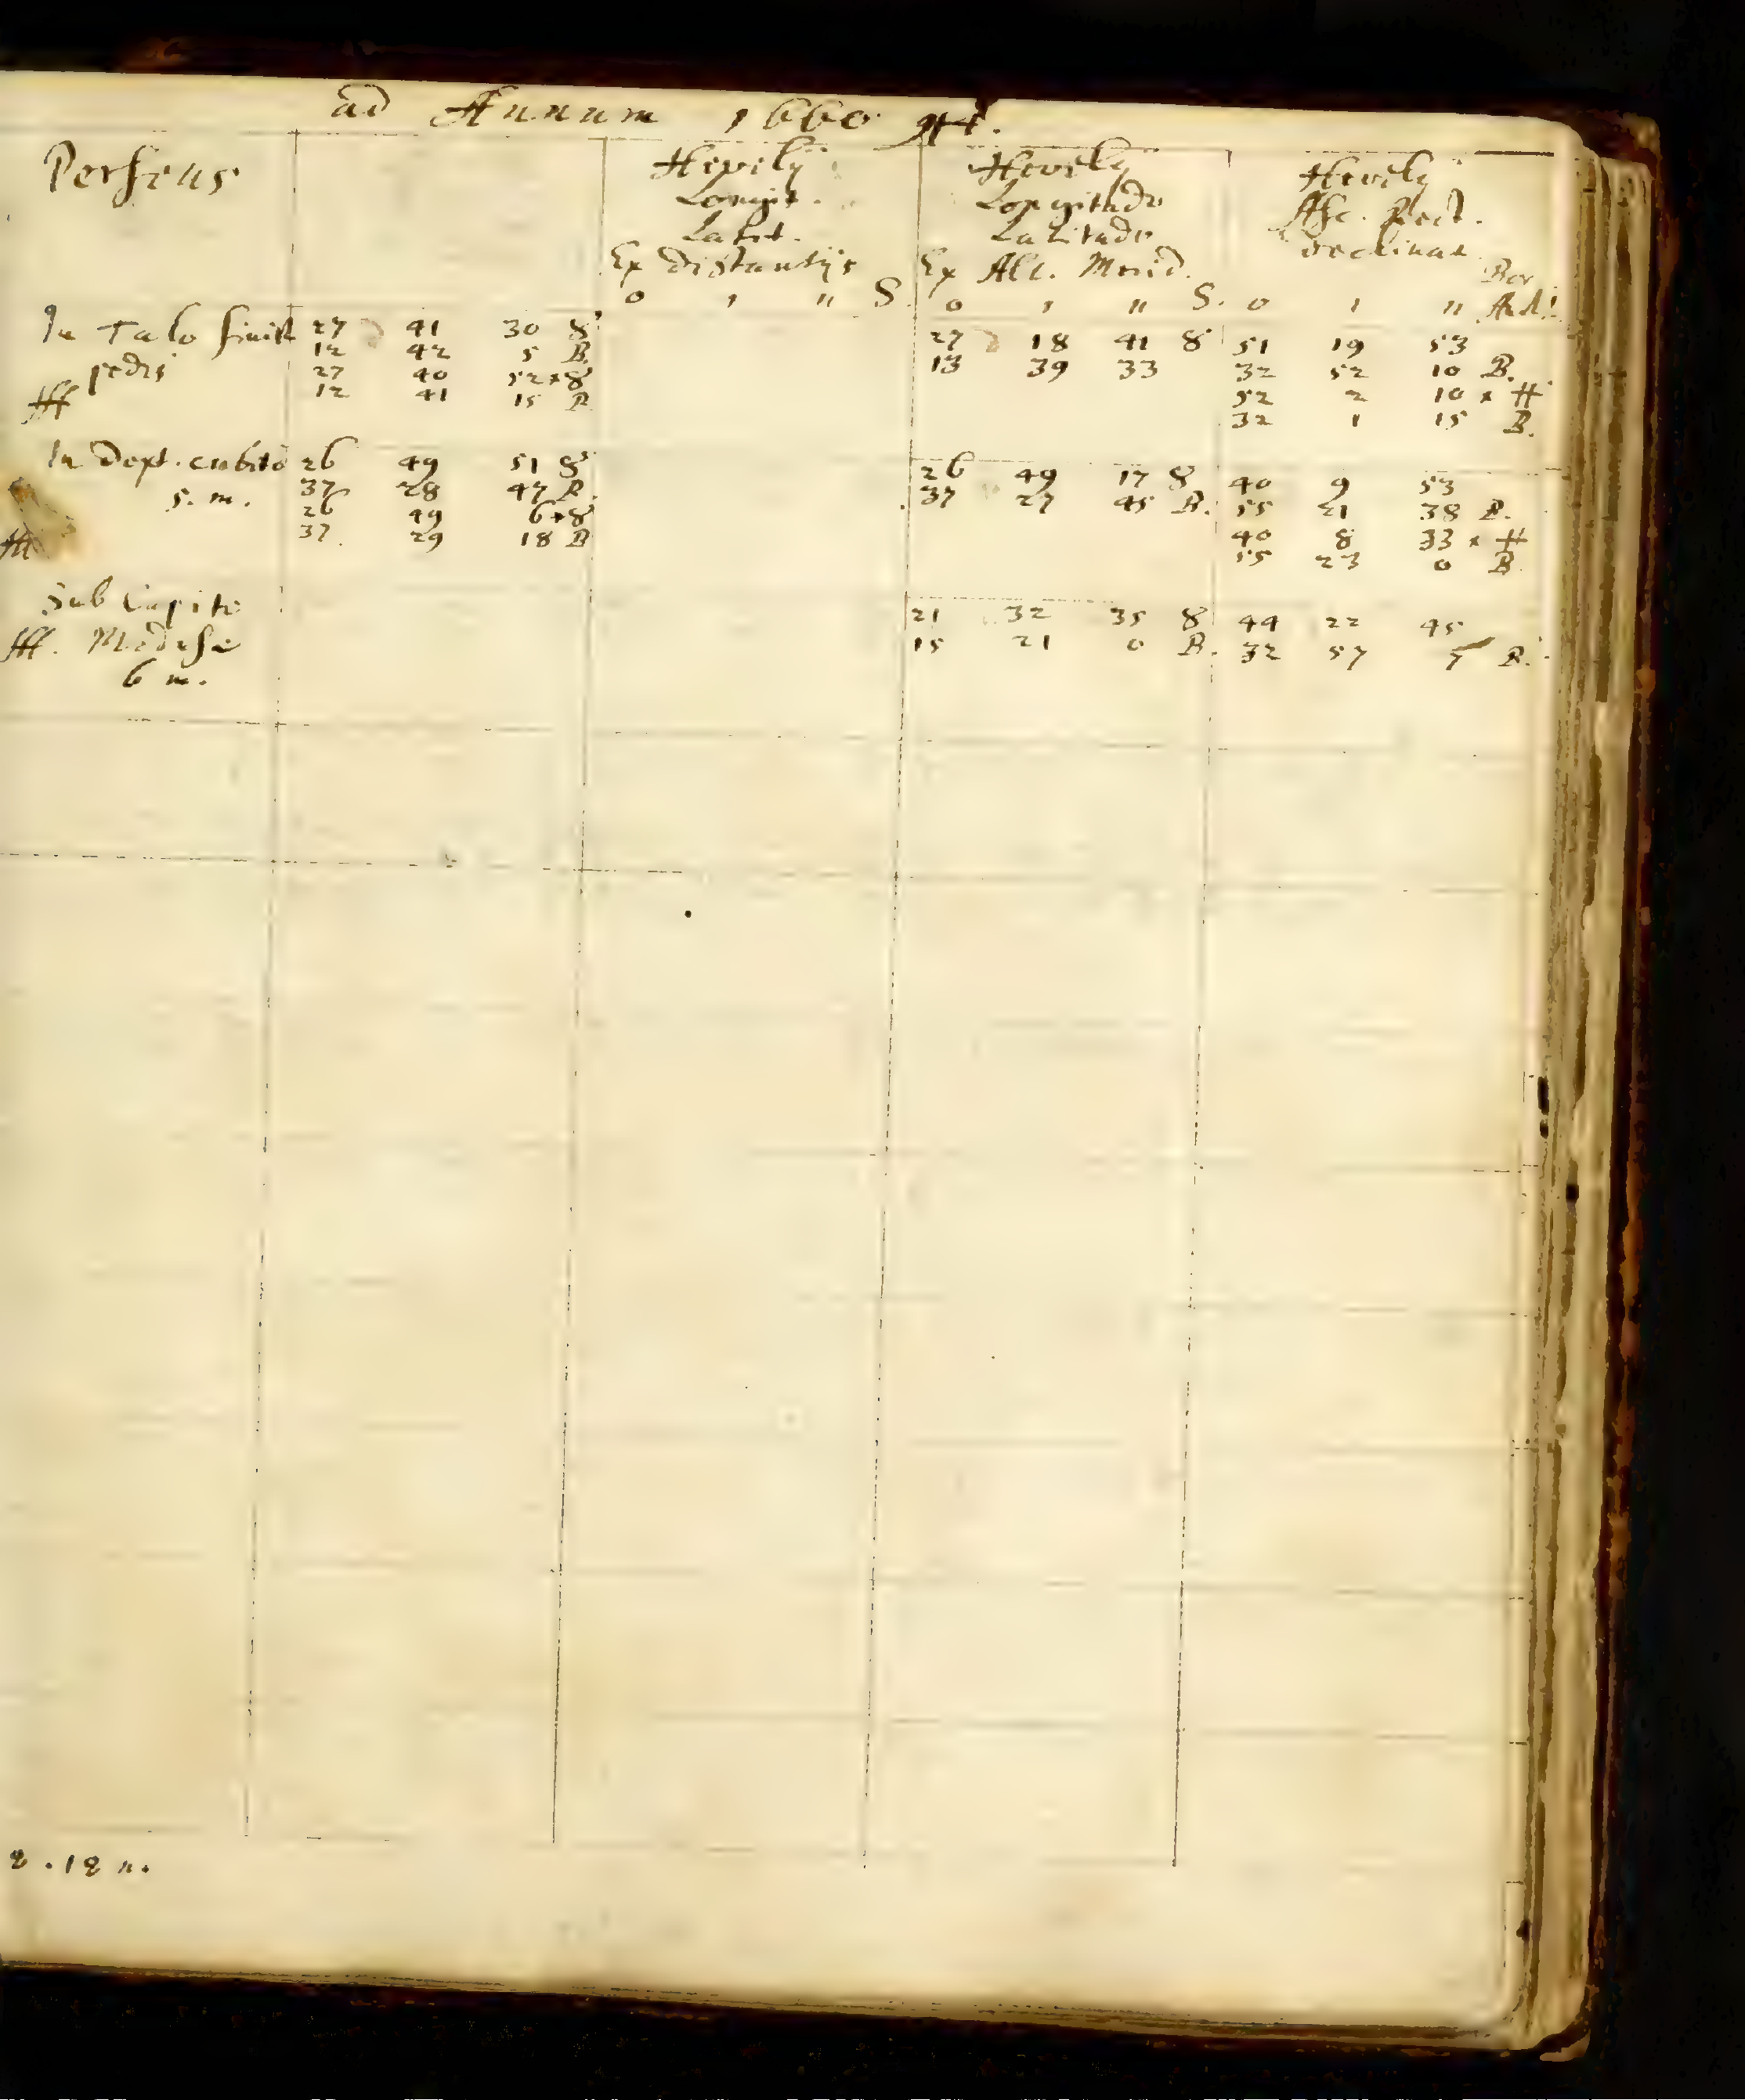 ad Annum 1660
Perseus
Hevelij Longit. Latit. Ex Distantijs
Hevelij Longitudo Latitudo Ex Alt. Merid.
Hevelij Asc. Rect. Declinat. Bor. Aust.
o ' " S. o ' " S. o ' "
In Talo sinist. 27 41 30 ♉ 27 18 41 ♉ 51 19 53
pedis 12 42 5 B. 13 39 33 32 52 10 B.
27 40 52 * ♉ 52 2 10 *
12 41 15 B 32 1 15 B.
In Dext. cubito 26 49 51 ♉ 26 49 17 ♉ 40 9 53
5. m. 37 28 47 B. 37 27 45 B. 55 21 38 B.
26 49 6 * ♉ 40 8 33 *
37 29 18 B 55 23 0 B
Sub Capite 21 32 35 ♉ 44 22 45
Medusæ 15 21 0 B. 32 57 5 B.
6 m.